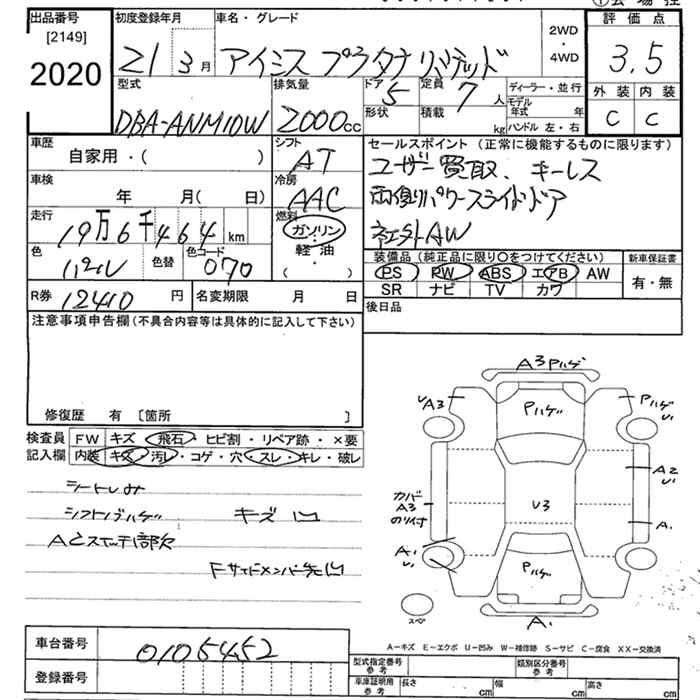 出品番号
[2149]
2020
初度登録年月
21年3月
車名・グレード
アイシス プラタナリミテッド
2WD
・
4WD
評価点
3.5
外装 内装
C C
型式
DBA-ANM10W
排気量
2000cc
ドア 5
形状
定員 7人
積載 kg
ディーラー・並行
モデル年式 年
ハンドル 左・右
車歴
自家用・( )
シフト
AT
セールスポイント(正常に機能するものに限ります)
ユーザー買取、キーレス
両側パワースライドドア
社外AW
車検
年 月( 日)
冷房
AAC
走行
19万6千464km
燃料
ガソリン
軽油
( )
色
パール
色替
色コード
070
装備品(純正品に限り○をつけてください)
PS PW ABS エアB AW
SR ナビ TV カワ
新車保証書
有・無
R券 12410円
名変期限 月 日
後日品
注意事項申告欄(不具合内容等は具体的に記入して下さい)
修復歴 有 [箇所 ]
検査員
記入欄
FW キズ・飛石・ヒビ割・リペア跡・×要
内装 キズ・汚レ・コゲ・穴・スレ・キレ・破レ
シートしみ
シフトノブハゲ キズ凹
Aピスイッチ部欠
Fサイドメンバー先凹
A3 Pハゲ
UA3
Pハゲ
Pハゲ
U1
A2
U1
カバー
A3
のり付
U3
A1
A1
U1
Pハゲ
スペ
A1
A-キズ E-エクボ U-凹み W-補修跡 S-サビ C-腐食 XX-交換済
車台番号
0105452
登録番号
型式指定番号
参考
類別区分番号
参考
車庫証明用
参考
長さ cm
幅 cm
高さ cm